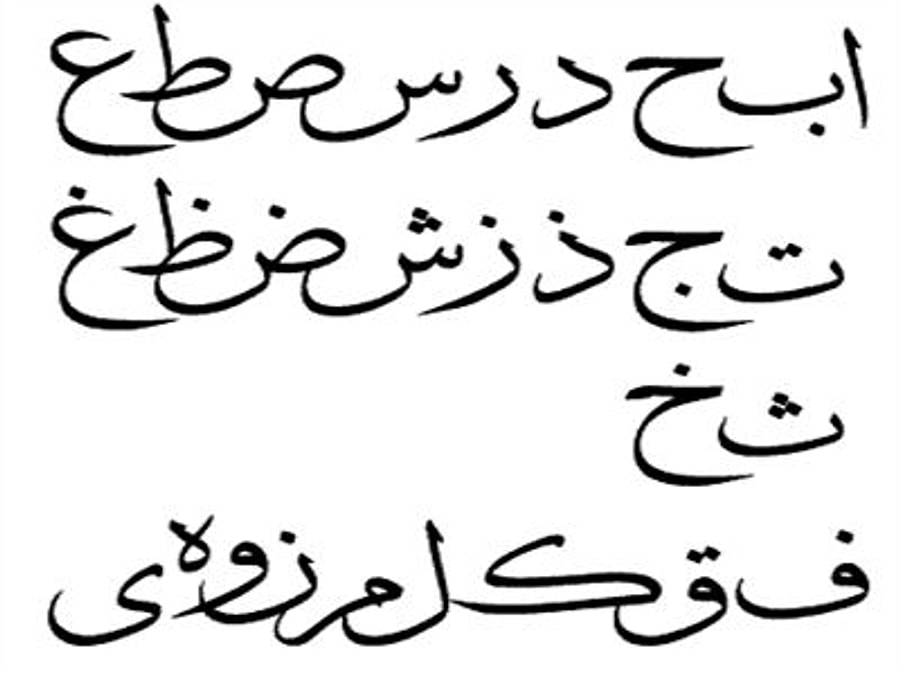 ا ب ح د ر س ص ط ع
ت ج ذ ز ش ض ظ غ
ث خ
ف ق ک ل م ن و ه ى